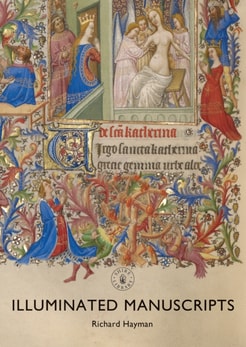 De katherina
Virgo sancta katherina
gemma urbe
SHIRE LIBRARY
ILLUMINATED MANUSCRIPTS
Richard Hayman